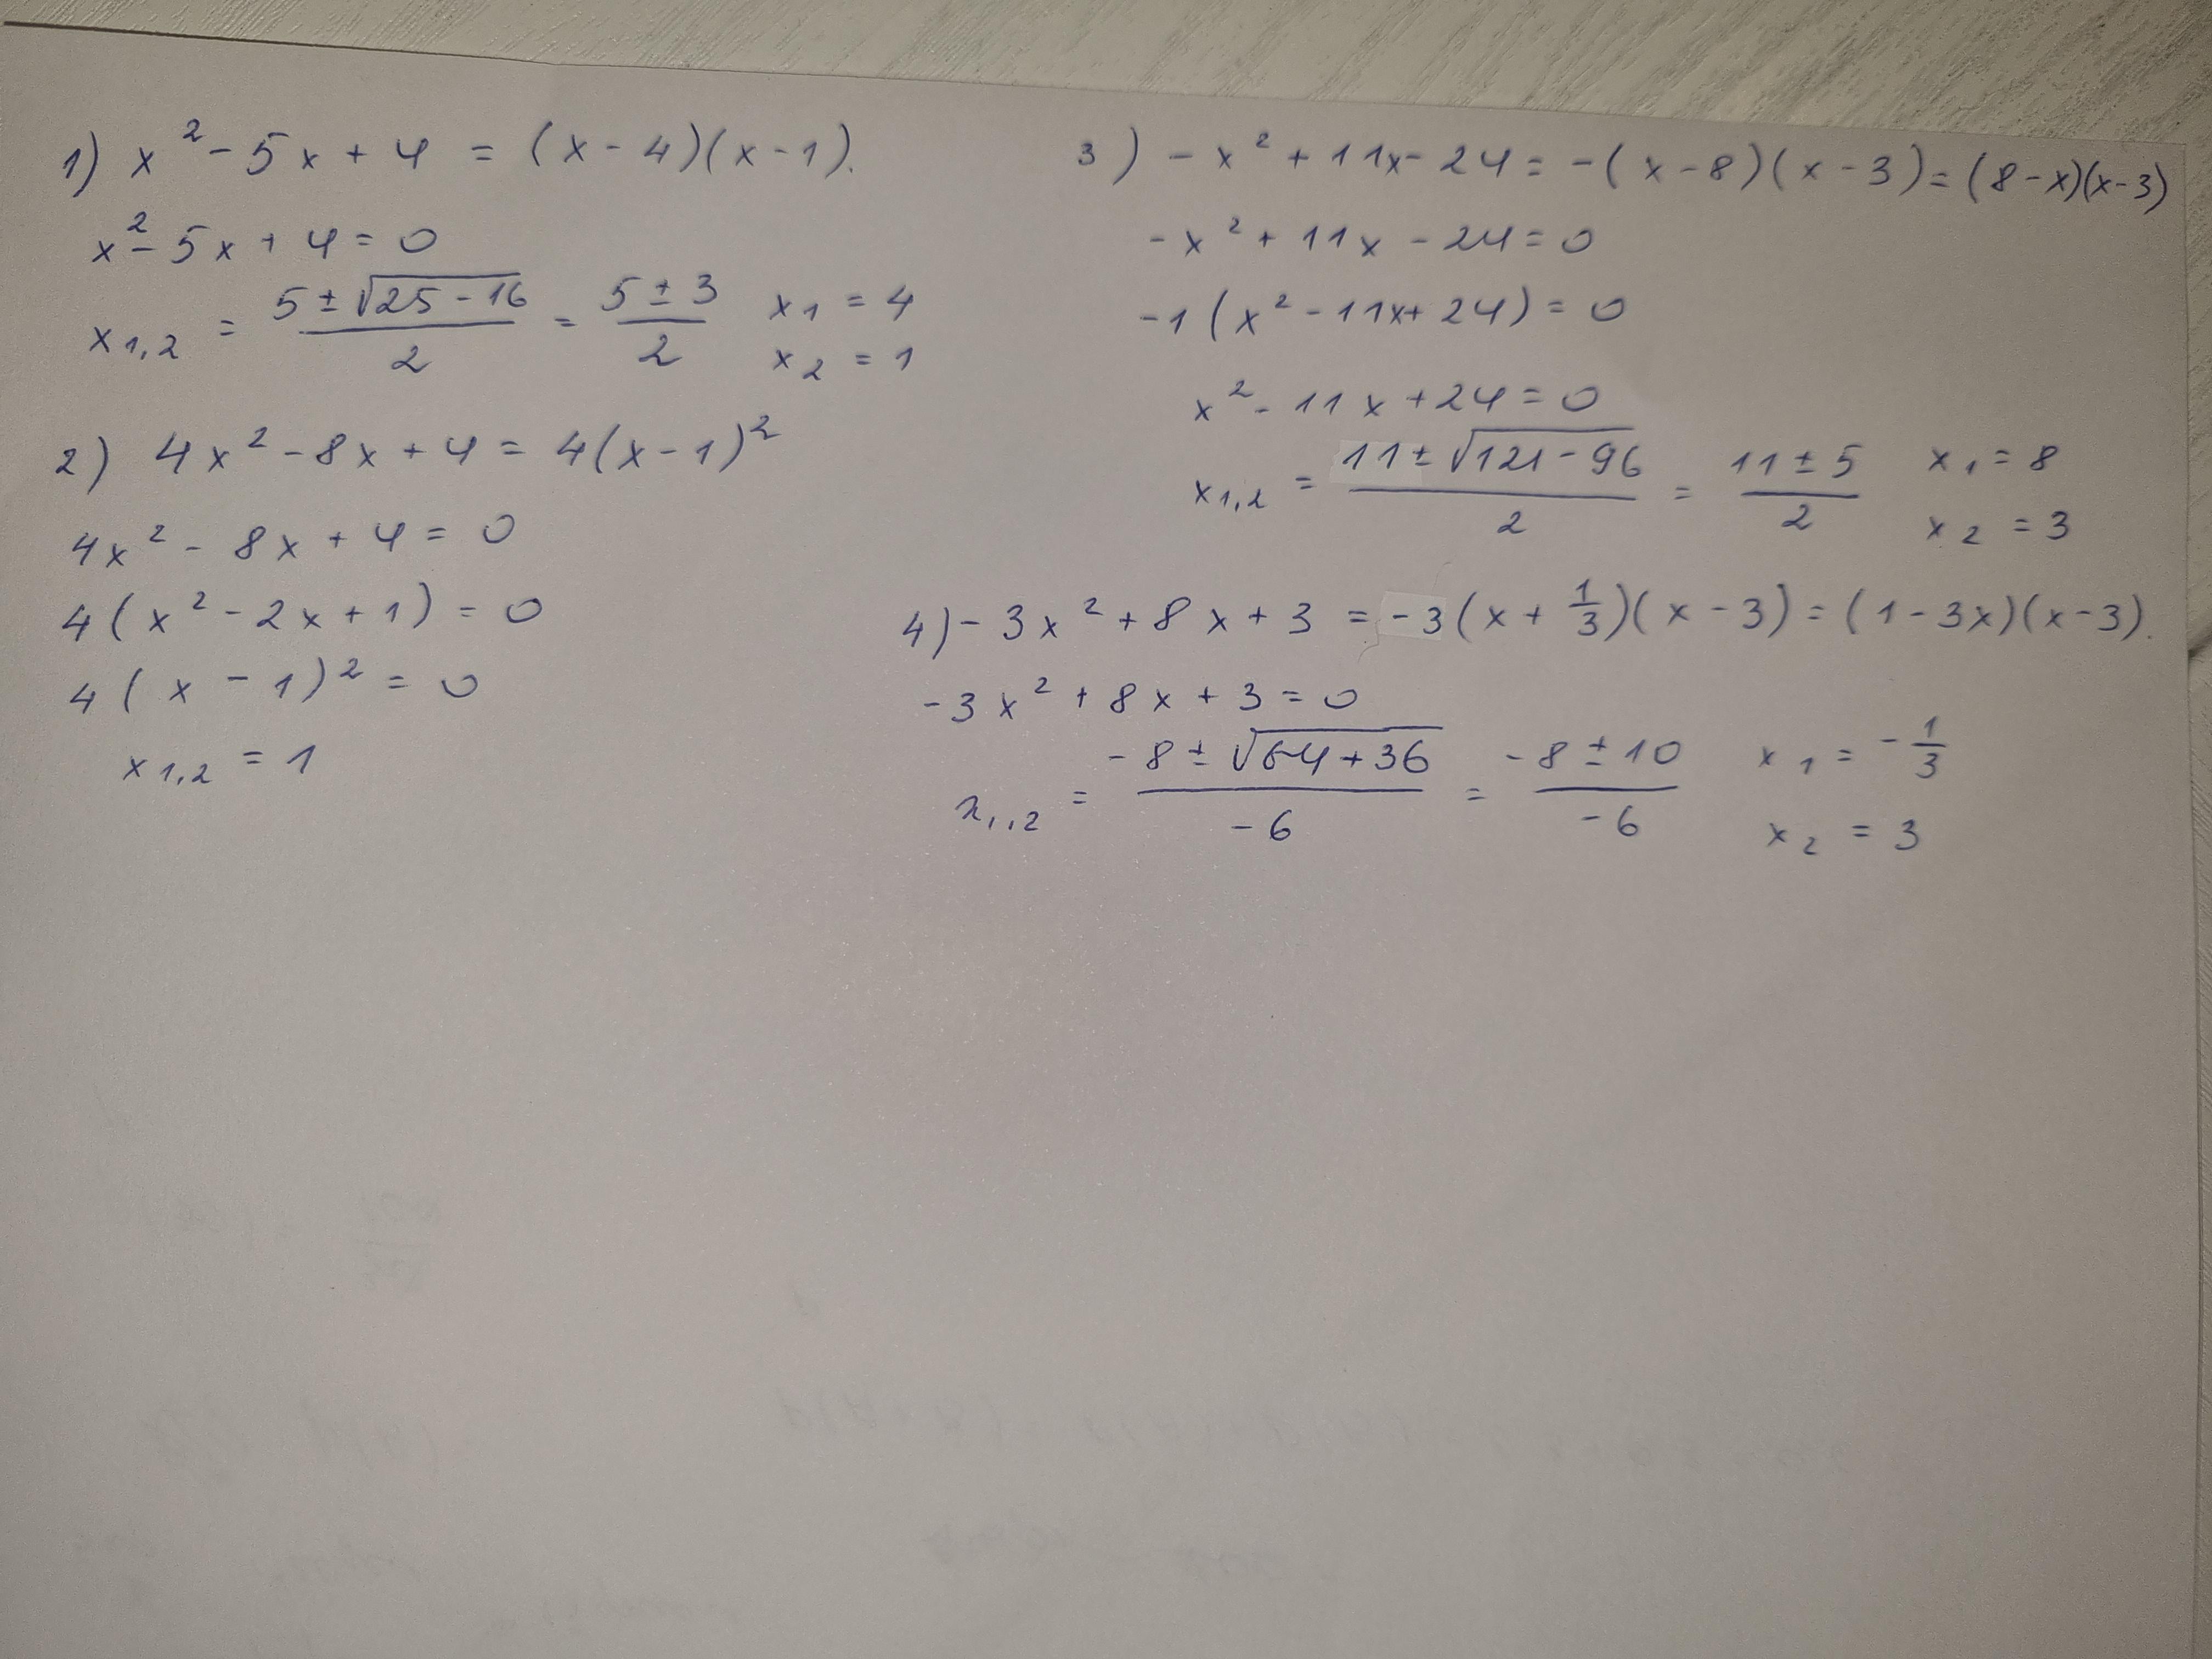 1) x² - 5x + 4 = (x - 4)(x - 1).
x² - 5x + 4 = 0
x1,2 = (5 ± √(25 - 16))/2 = (5 ± 3)/2 x1 = 4
x2 = 1
2) 4x² - 8x + 4 = 4(x - 1)²
4x² - 8x + 4 = 0
4(x² - 2x + 1) = 0
4(x - 1)² = 0
x1,2 = 1
3) - x² + 11x - 24 = -(x - 8)(x - 3) = (8 - x)(x - 3)
- x² + 11x - 24 = 0
-1(x² - 11x + 24) = 0
x² - 11x + 24 = 0
x1,2 = (11 ± √(121 - 96))/2 = (11 ± 5)/2 x1 = 8
x2 = 3
4) - 3x² + 8x + 3 = -3(x + 1/3)(x - 3) = (1 - 3x)(x - 3).
- 3x² + 8x + 3 = 0
x1,2 = (-8 ± √(64 + 36))/-6 = (-8 ± 10)/-6 x1 = -1/3
x2 = 3